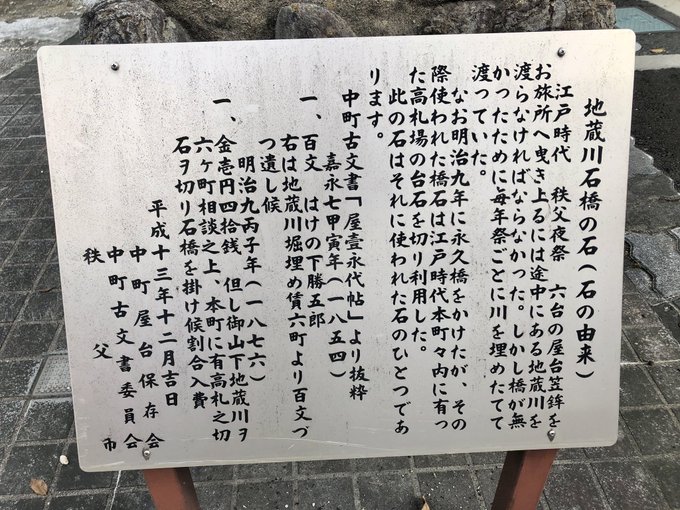 地蔵川石橋の石（石の由来）
江戸時代　秩父夜祭　六台の屋台笠鉾を
お旅所へ曳き上るには途中にある地蔵川を
渡らなければならなかった。しかし橋が無
かったために毎年祭ごとに川を埋めたてて
渡っていた。
なお明治九年に永久橋をかけたが、その
際使われた橋石は江戸時代本町々内に有っ
た高札場の台石を切り利用した。
此の石はそれに使われた石のひとつであ
ります。
中町古文書「屋壹永代帖」より抜粋
嘉永七甲寅年（一八五四）
一、百文　はけの下勝五郎
右は地蔵川堀埋め賃六町より百文づ
つ遺し候
明治九丙子年（一八七六）
一、金壱円四拾銭　但し御山下地蔵川ヲ
六ヶ町相談之上、本町に有高札之切
石ヲ切り石橋を掛け候割合入費
平成十三年十二月吉日
中町屋台保存会
中町古文書委員会
秩父市